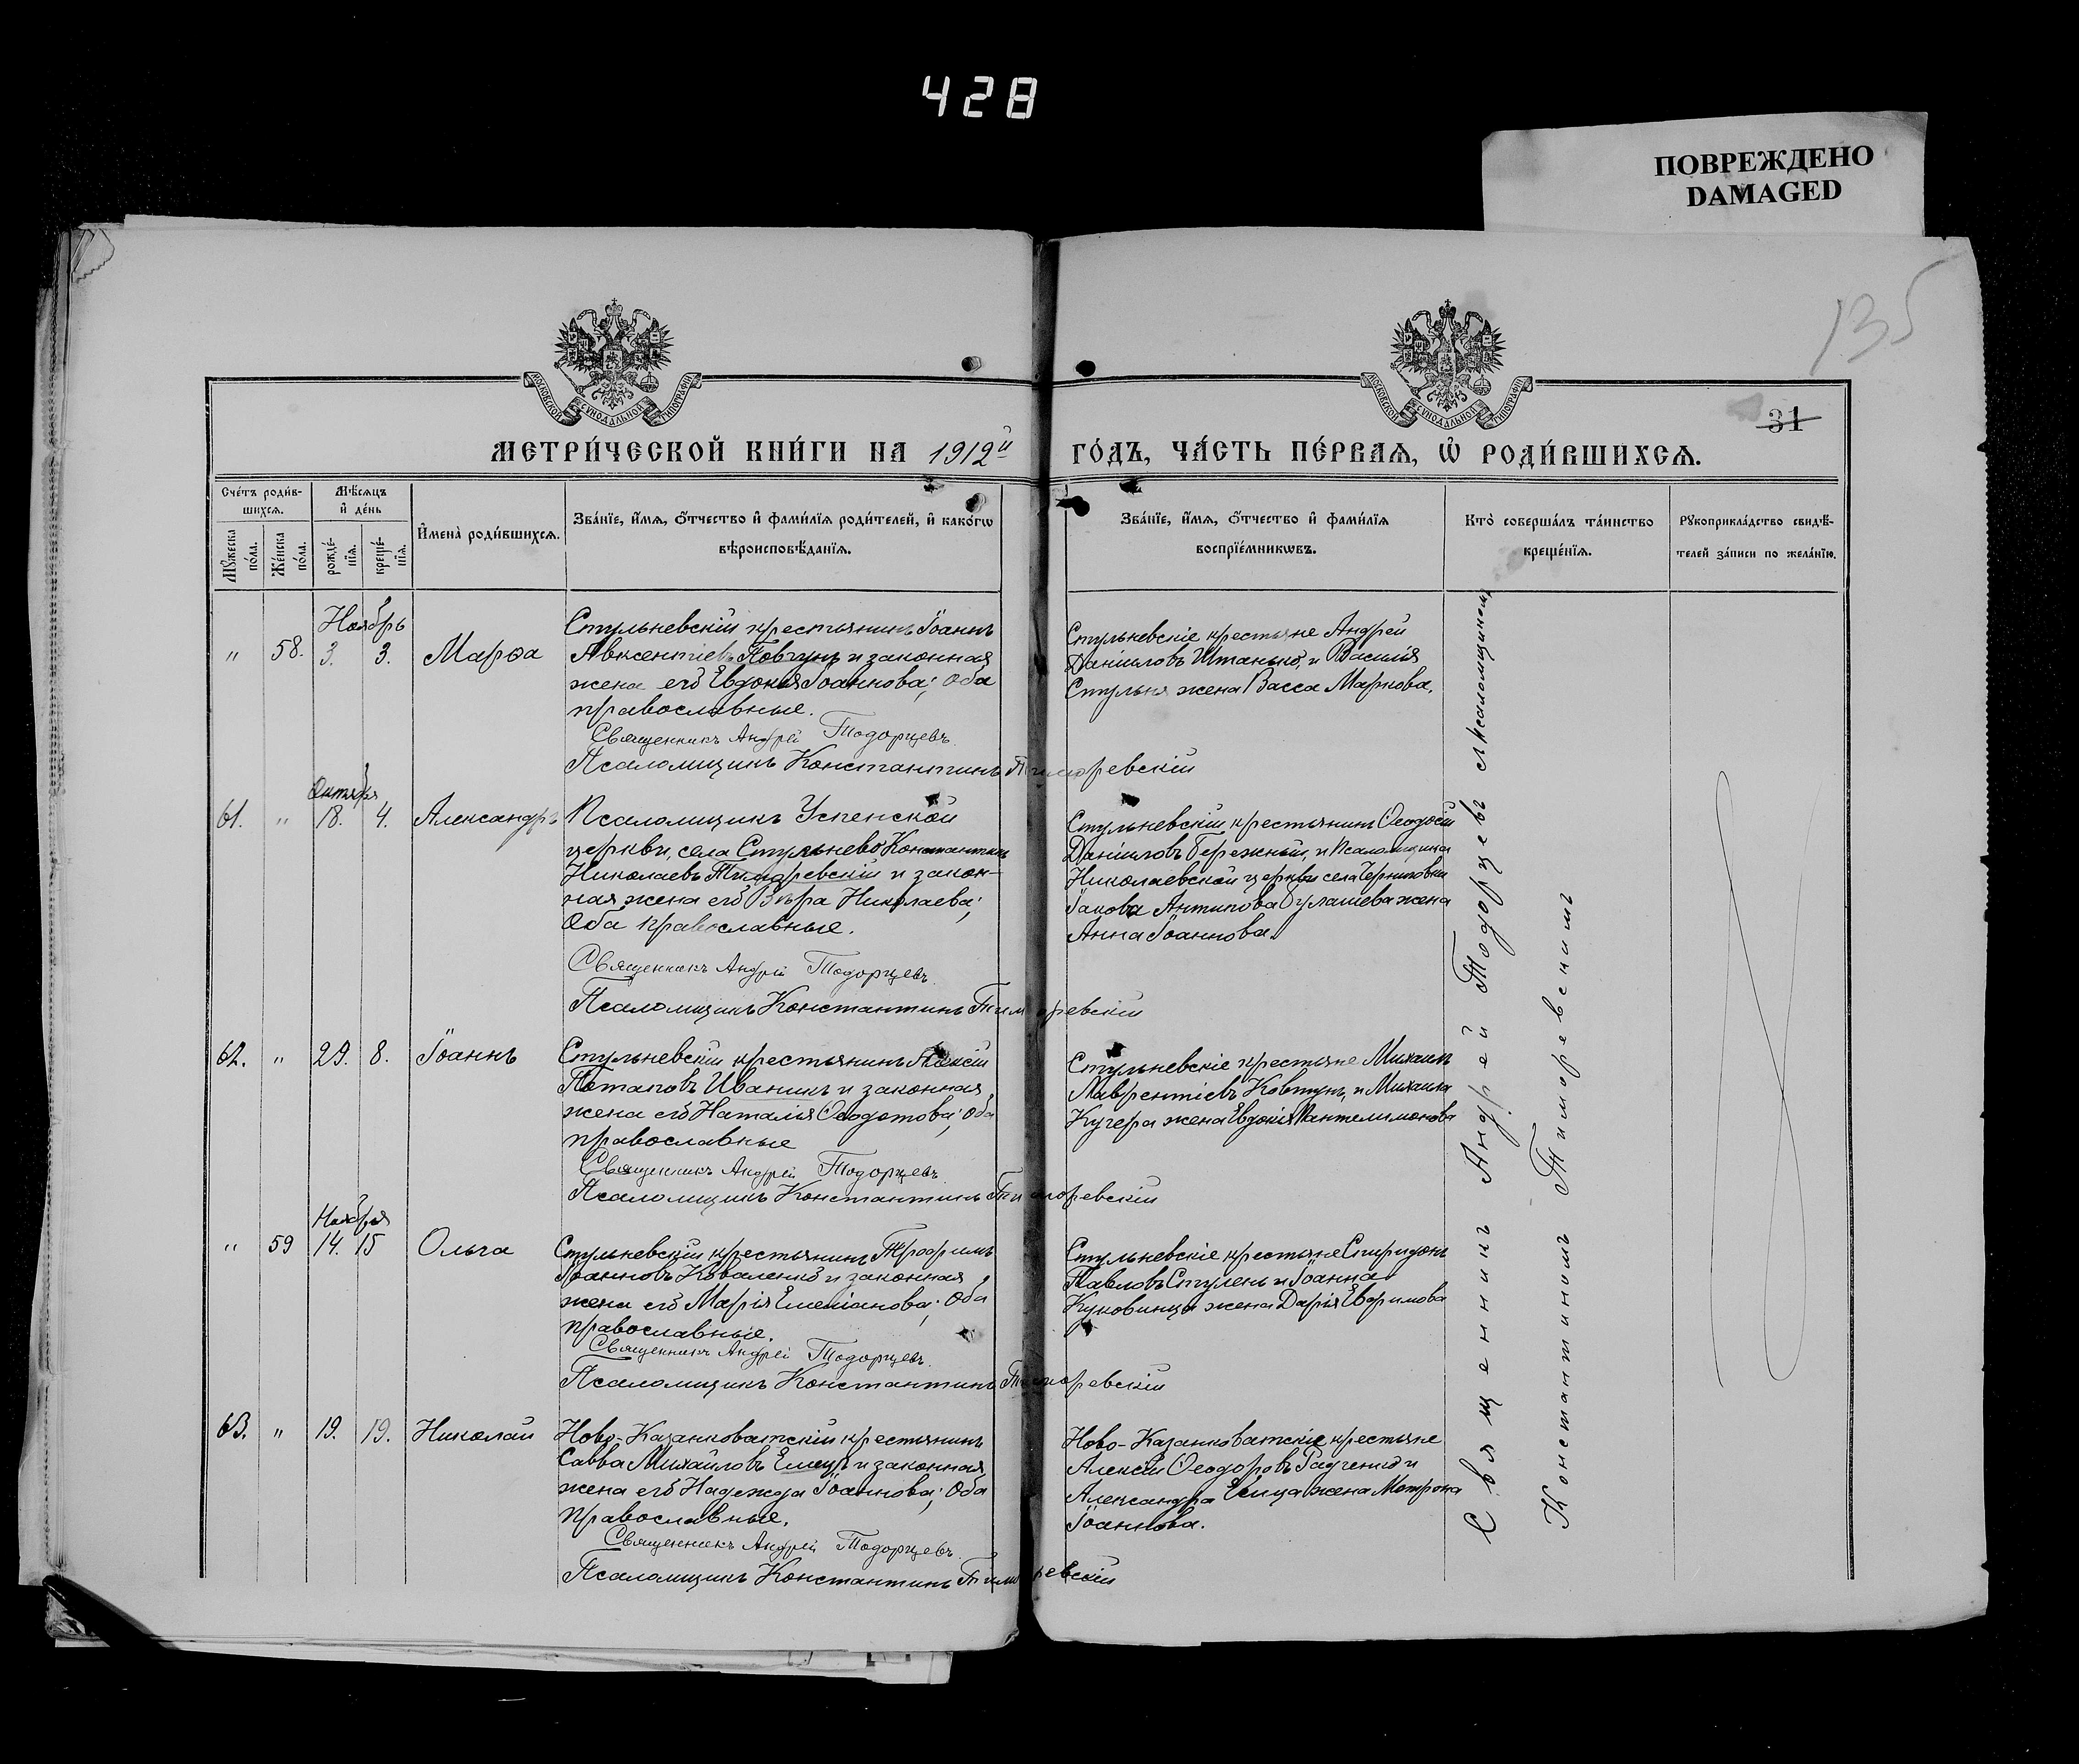 428
ПОВРЕЖДЕНО
DAMAGED
135
31
МОСКОВСКОЙ СѴНОДАЛЬНОЙ ТИПОГРАФІИ
МОСКОВСКОЙ СѴНОДАЛЬНОЙ ТИПОГРАФІИ
МЕТРИ́ЧЕСКОЙ КНИ́ГИ НА 1912й ГО́ДЪ, ЧА́СТЬ ПЕ́РВАѦ, Ѡ҆ РОДИ́ВШИХСѦ.
Сче́тъ роди́в-
шихсѧ.
Мꙋ́жеска по́ла.
Же́нска по́ла.
Мѣ́сѧцъ
и҆ де́нь
рожде́-
нїѧ.
креще́-
нїѧ.
И҆мена̀ роди́вшихсѧ.
Зва́нїе, и҆́мѧ, ѻ҆́тчество и҆ фами́лїѧ роди́телей, и҆ како́гѡ
вѣроисповѣ́данїѧ.
Зва́нїе, и҆́мѧ, ѻ҆́тчество и҆ фами́лїѧ
воспрїе́мникѡвъ.
Кто̀ соверша́лъ та́инство
креще́нїѧ.
Рꙋкоприкла́дство свидѣ́-
телей за́писи по жела́нїю.
Ноябрь
" 58. 3. 3. Марѳа
Стульневскій крестьянинъ Іоаннъ
Авксентіевъ Ковтунъ и законная
жена его Евдокія Іоаннова; оба
православные.
Священникъ Андрей Тодорцевъ.
Псаломщикъ Константинъ Тиморевскій
Стульневскіе крестьяне Андрей
Даніиловъ Штанько, и Василія
Стульня жена Васса Маркова.
Октября
61. " 18. 4. Александръ
Псаломщикъ Успенской
церкви, села Стульнево Константинъ
Николаевъ Тиморевскій и закон-
ная жена его Вѣра Николаева;
Оба православные.
Священникъ Андрей Тодорцевъ.
Псаломщикъ Константинъ Тиморевскій
Стульневскій крестьянинъ Ѳеодосій
Даніиловъ Бережный, и Псаломщика
Николаевской церкви села Черниговки
Іакова Антипова Булашева жена
Анна Іоаннова.
62. " 29. 8. Іоаннъ
Стульневскій крестьянинъ Алексій
Потаповъ Иваникъ и законная
жена его Наталія Ѳеодотова; оба
православные
Священникъ Андрей Тодорцевъ.
Псаломщикъ Константинъ Тиморевскій
Стульневскіе крестьяне Михаилъ
Лаврентіевъ Ковтунъ, и Михаила
Кучера жена Евдокія Пантелимонова
Ноября
" 59 14. 15 Ольга
Стульневскій крестьянинъ Трофимъ
Іоанновъ Коваленко и законная
жена его Марія Емеліанова; Оба
православные.
Священникъ Андрей Тодорцевъ.
Псаломщикъ Константинъ Тиморевскій
Стульневскіе крестьяне Спиридонъ
Павловъ Стулень и Іоанна
Куковинца жена Дарія Евфимова
63. " 19. 19. Николай
Ново-Казанковатскій крестьянинъ
Савва Михайловъ Емецъ и законная
жена его Надежда Іоаннова; Оба
Православные.
Священникъ Андрей Тодорцевъ.
Псаломщикъ Константинъ Тиморевскій
Ново-Казанковатскіе крестьяне
Алексій Ѳеодоровъ Радченко и
Александра Емца жена Мотрона
Іоаннова.
Священникъ Андрей Тодорцевъ съ псаломщикомъ
Константиномъ Тиморевскимъ